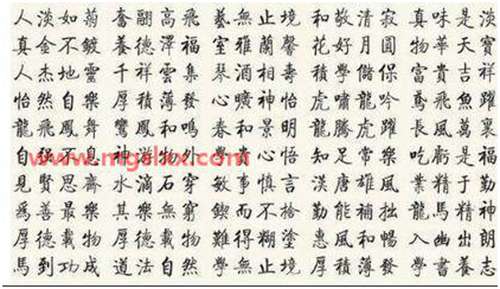 人淡如菊 奮翮高飛 藝無止境 和敬清寂 真味是淡
真金不鍍 養德澤福 室雅蘭馨 花好月圓 物華天寶
人杰地靈 千祥雲集 琴酒相壽 積學儲保 富貴吉祥
怡然自樂 厚積薄發 心曠神怡 虎嘯龍吟 鳶飛魚躍
龍飛鳳舞 鸞鳳和鳴 春和景明 龍騰虎躍 長風萬裏
自強不息 神游物外 學貴心悟 知足常樂 吃虧是福
見賢思齊 水滴石穿 敏事慎言 漢唐雄風 業精于勤
為善最樂 其樂無窮 鍥而不捨 勤能補拙 龍馬精神
厚德載物 難得糊塗 惠風和暢 入幽出朗
馬到功成 道法自然 學無止境 厚積薄發 學書養志